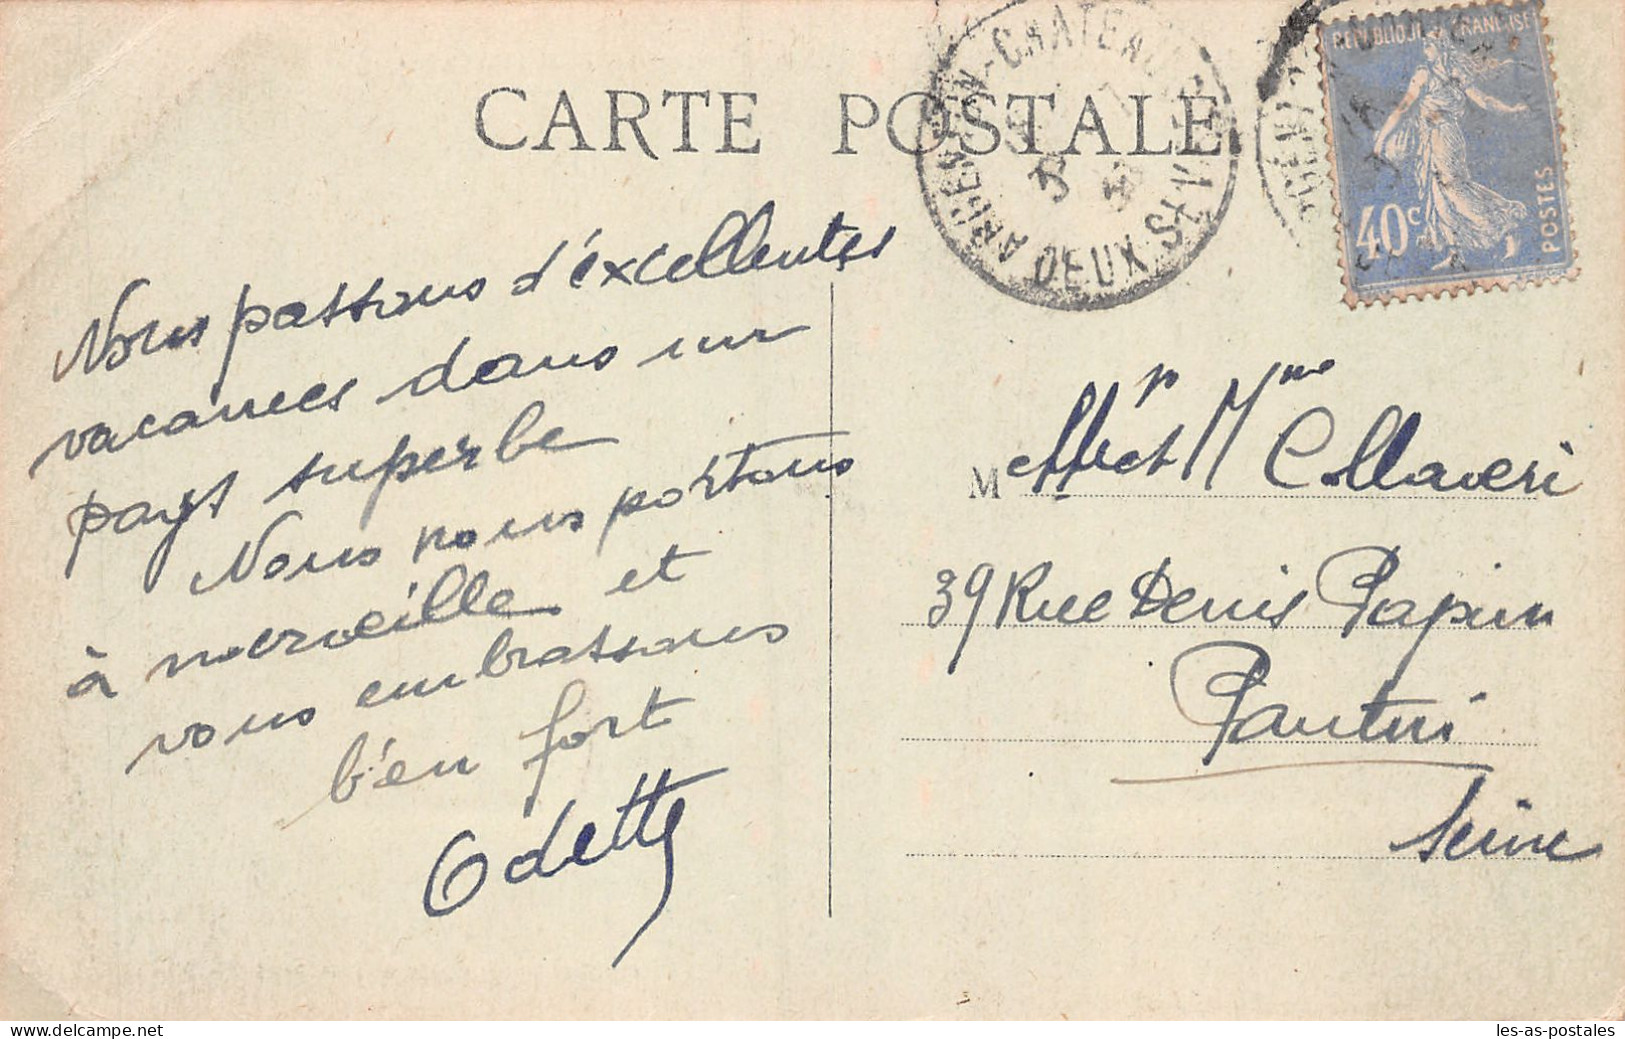 CARTE POSTALE
ARGENTON-CHATEAU
DEUX SÈVRES
REPUBLIQUE FRANÇAISE
40c
POSTES
Nous passons d'éxcellentes
vacances dans un
pays superbe
Nous nous portons
à merveille et
vous embrassons
b'en fort
Odette
M et Mme Collaveri
39 Rue Denis Papin
Pantin
Seine
les-as-postales
www.delcampe.net